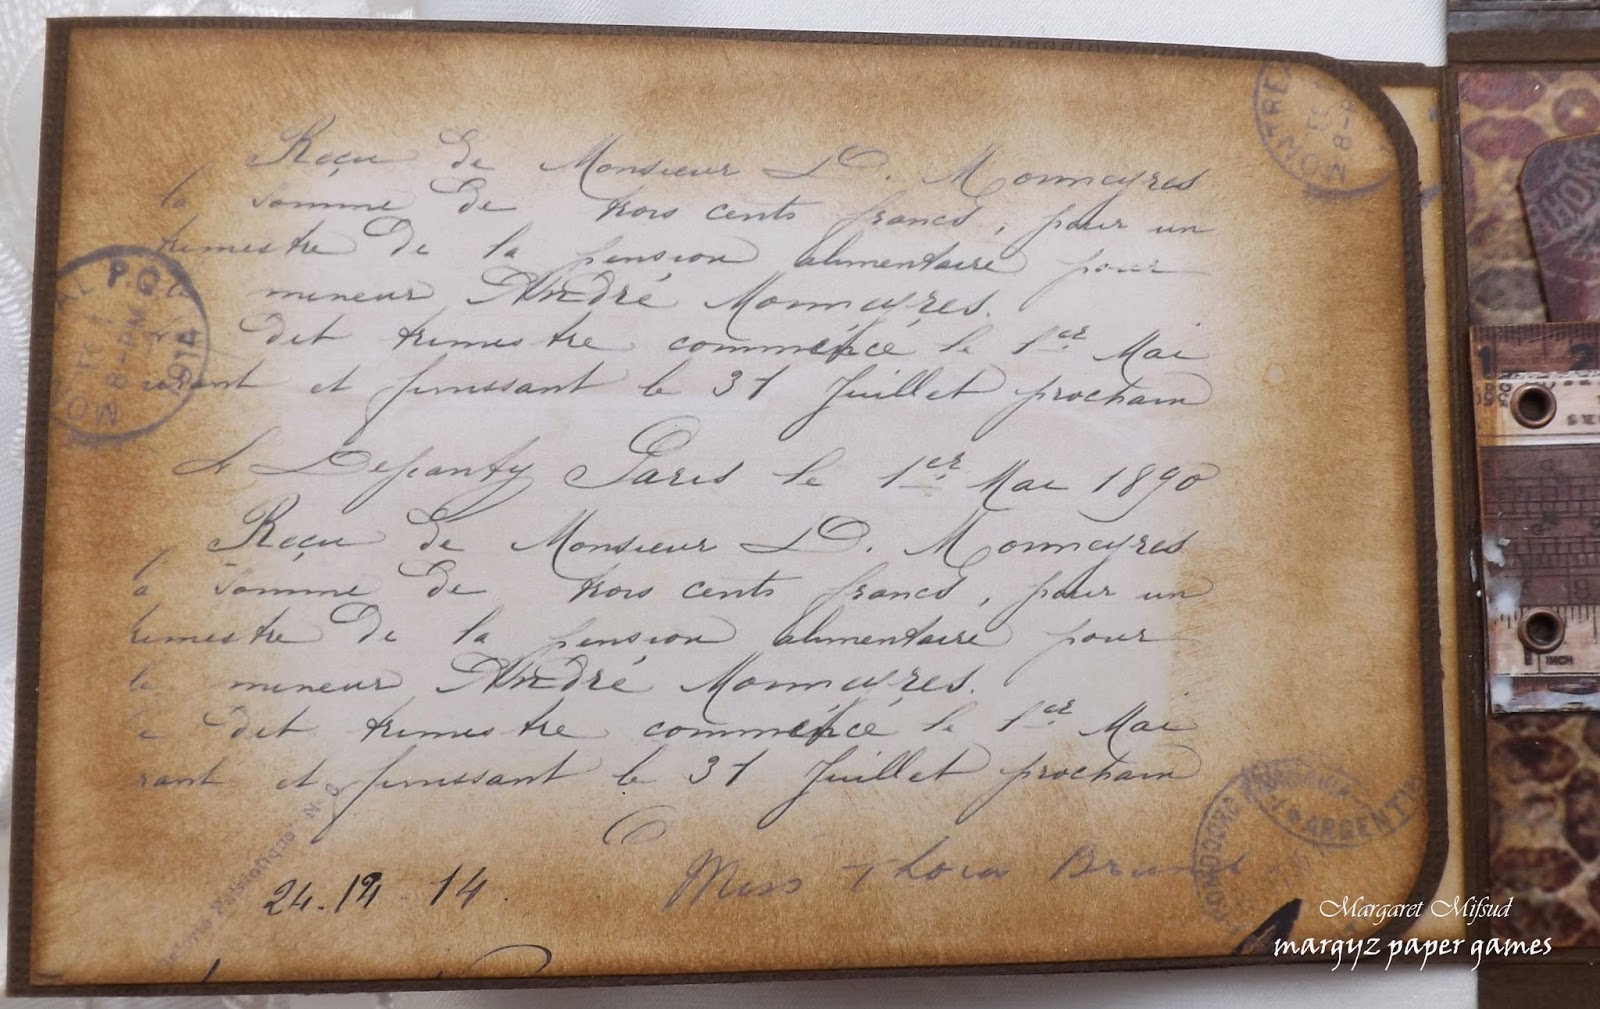 Reçu de Monsieur D. Monnayres
la somme de trois cents francs, pour un
trimestre de la pension alimentaire pour
le mineur André Monnayres.
dit trimestre commencé le 1er Mai
et finissant le 31 Juillet prochain
Paris le 1er Mai 1890
Reçu de Monsieur D. Monnayres
la somme de trois cents francs, pour un
trimestre de la pension alimentaire pour
le mineur André Monnayres.
dit trimestre commencé le 1er Mai
rant et finissant le 31 Juillet prochain
24.12-14
Miss Thora
AL P.Q
8-PM
1914
MO
MONTREA
8-8
ARGENTI
1 2
1 INCH
Margaret Mifsud
margyz paper games